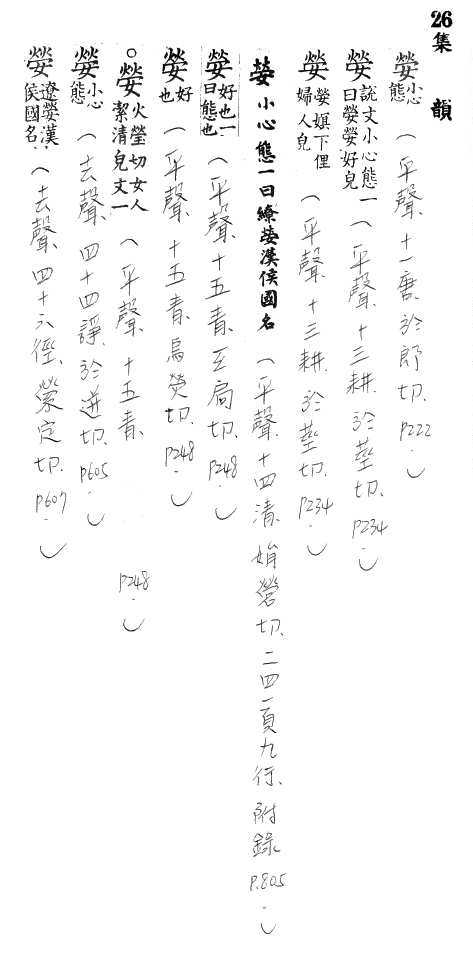 26集　韻
嫈小心態（平聲、十一唐、於郎切、P222.）
嫈說文小心態一曰嫈嫈好皃（平聲、十三耕、於莖切、P234.）
嫈嫈嫇下俚婦人皃（平聲、十三耕、於莖切、P234.）
嫈小心態一曰繚嫈漢侯國名（平聲、十四清、娟營切、二四一頁九行、附錄P.805.）
嫈好也一曰態也（平聲、十五青、至扃切、P248.）
嫈好也（平聲、十五青、烏熒切、P248.）
○嫈火瑩切女人潔清皃文一（平聲、十五青、P248.）
嫈小心態（去聲、四十四諍、於迸切、P605.）
嫈遼嫈漢侯國名．（去聲、四十六徑、縈定切、P607.）